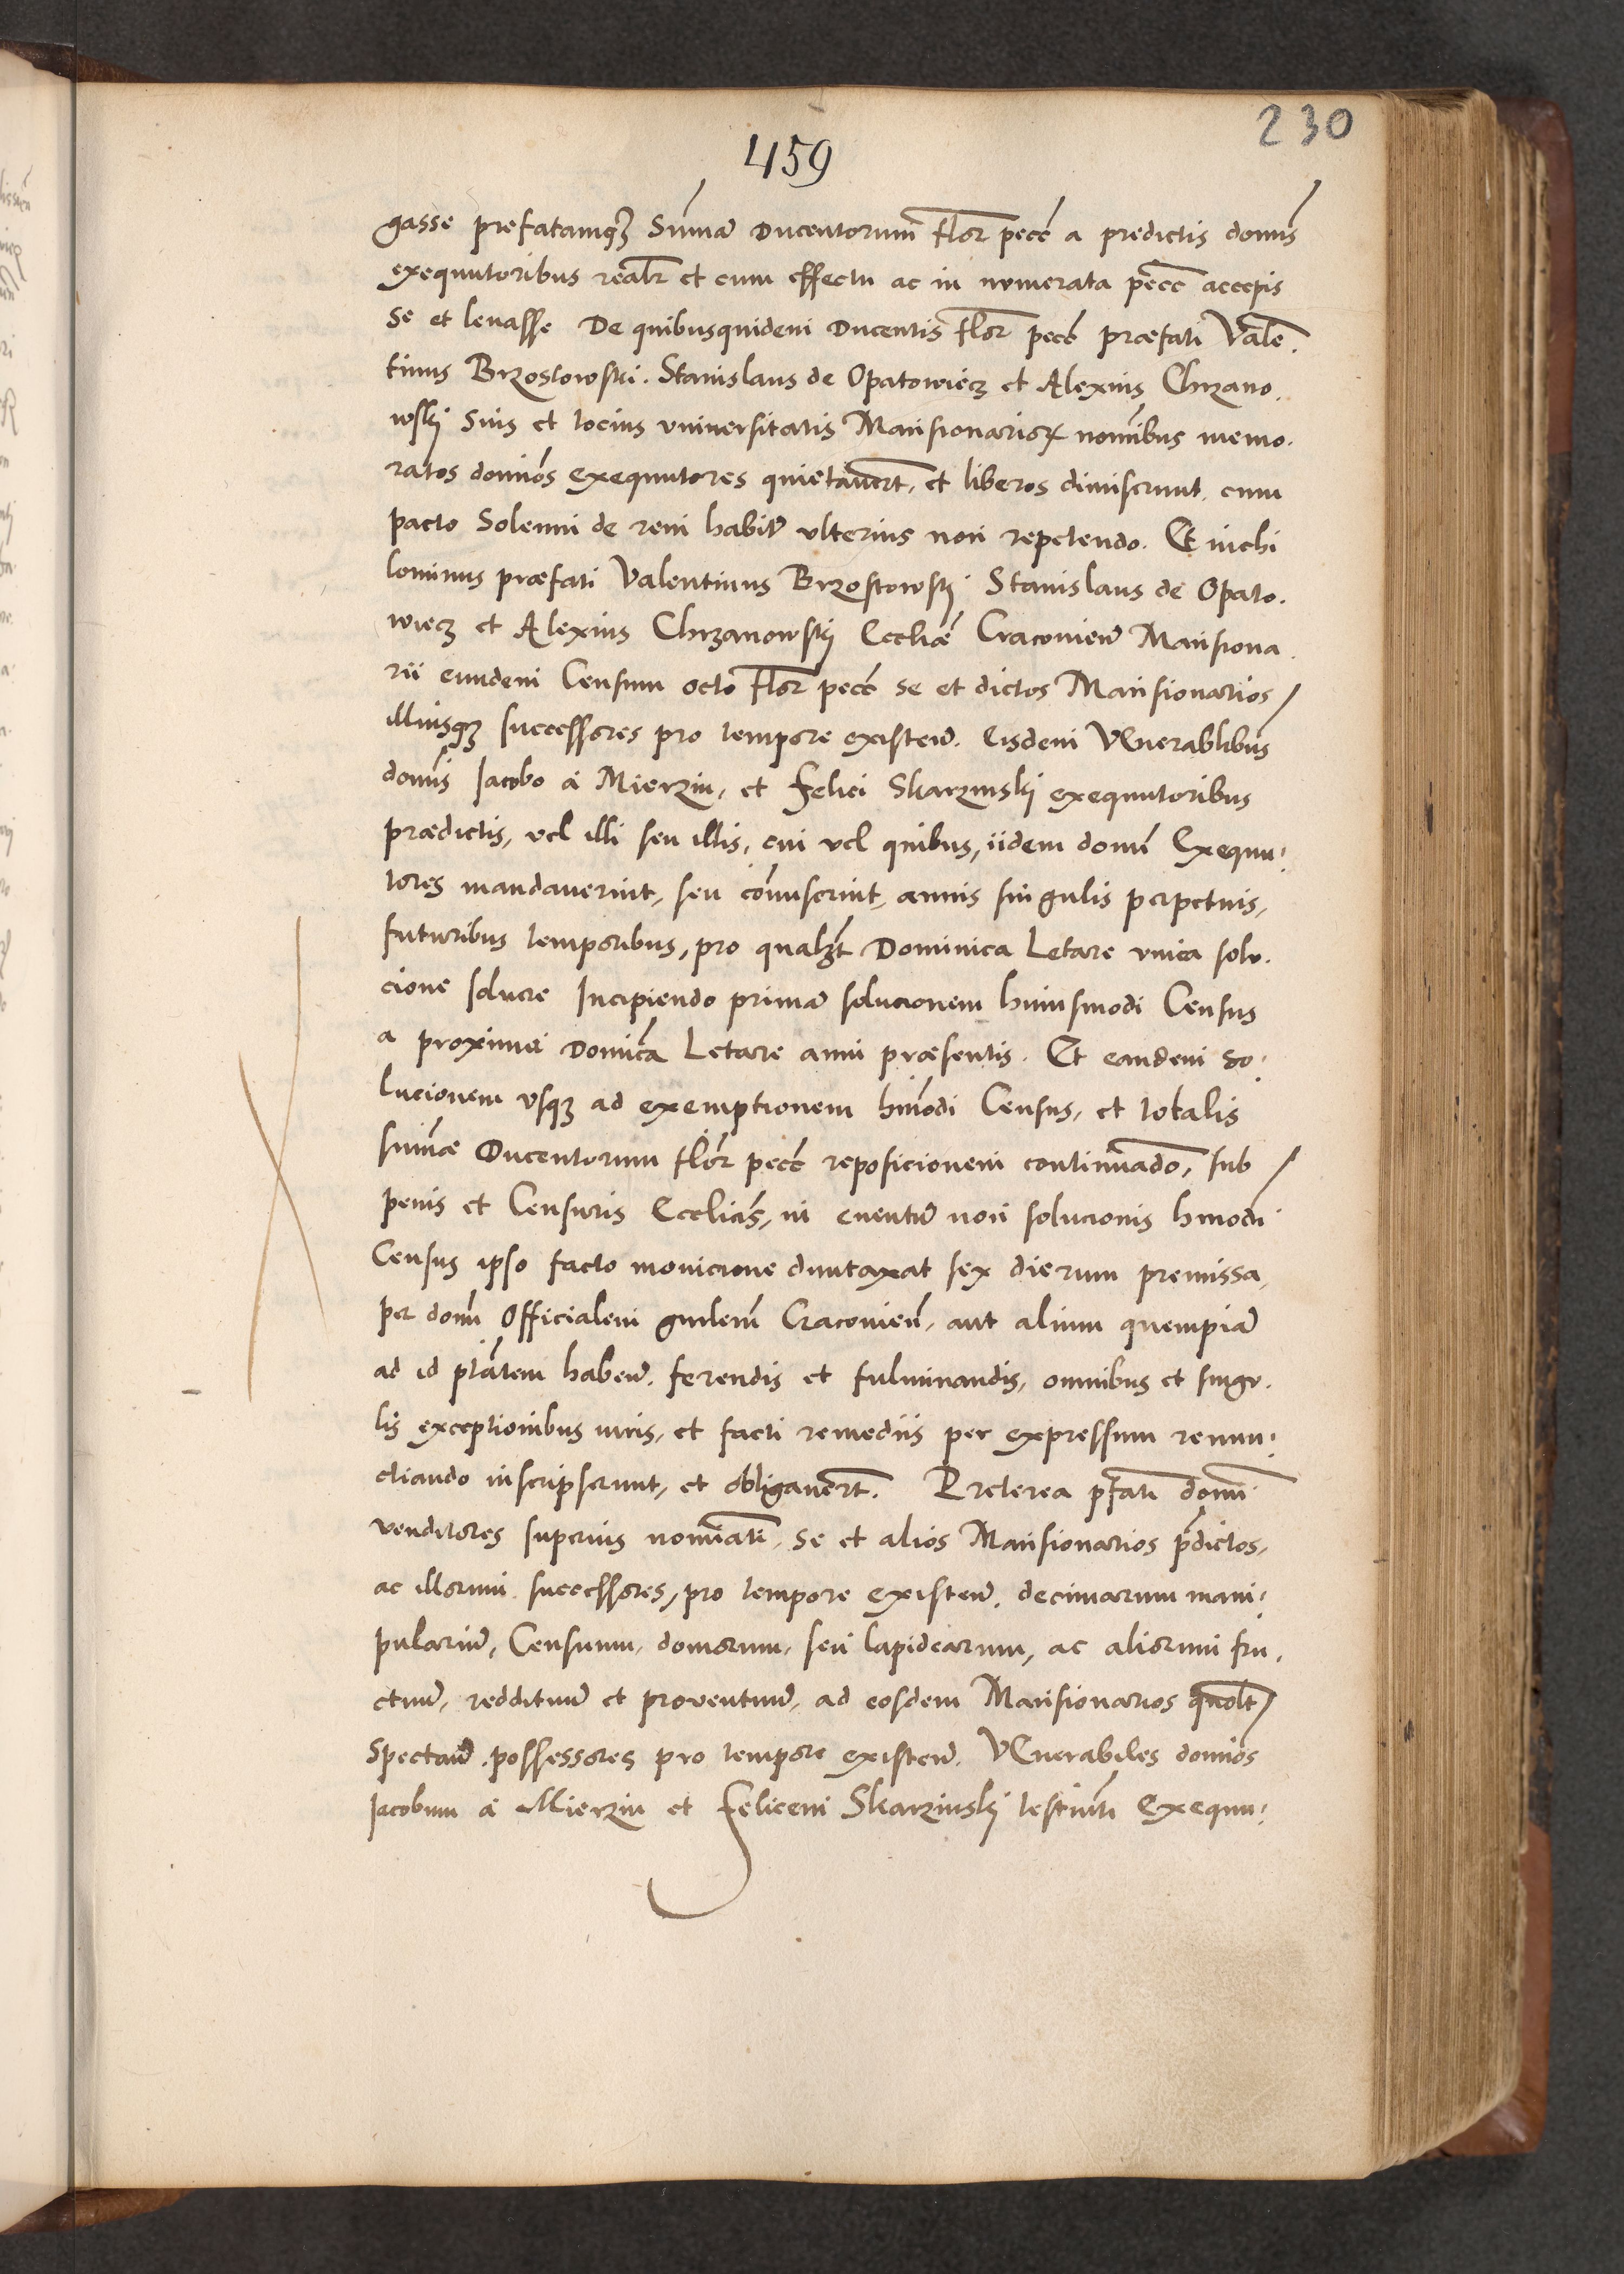 230
459
gasse prefatamqȝ Summā Ducentorum flor pecē a predictis domīs
exequutoribus realr et cum effectu ac in numerata pecē accepis
se et leuasse De quibusquidem Ducentis flor pecē præfati Valē.
tinus Brzostowski. Stanislaus de Opatowiecz et Alexius Chrzano.
wskj suis et tocius vniuersitatis Mansionarioꝝ nomībus memo.
ratos domīos exequutores quietauert, et liberos dimiserunt, cum
pacto Solenni de rem habitā vlterius non repetendo. Et nichi
lominus præfati Valentinus Brzostowskj Stanislaus de Opato.
wiecz et Alexius Chrzanowskj Eccliæ Cracovieñ Mansiona.
rii eundem Censum octo flor pecē se et dictos Mansionarios
illiusqȝ successores pro tempore existeñ. Eisdem Venerablibus
domīs Jacobo a Mierzin, et Felici Skarzinskj exequutoribus
prædictis, vel illi seu illis, cui vel quibus, iidem domī Exequu:
tores mandauerint, seu comiserint, annis singulis perpetuis,
futuribus temporibus, pro qualȝt Dominica Letare vnica solu.
cione soluere Incipiendo primā solucionem huiusmodi Census
a proxima Domīca Letare anni præsentis. Et eandem so:
lucionem vsqȝ ad exemptionem hmōdi Census, et totalis
summæ Ducentorum flor pecē reposicionem continuādo, sub
penis et Censuris Eccliās, in euentū non solucionis hmodi
Census ipso facto monicione duntaxat sex dierum premissa,
per domī Officialem gnlem Cracovieñ, aut alium quempiā
ad id ptātem habeñ. ferendis et fulminandis, omnibus et singu.
lis exceptionibus iuris, et facti remediis per expressum renun:
ctiando inscripserunt, et obligauert. Preterea pfati domī
venditores superius nominati, se et alios Mansionarios pdictos,
ac illorum successores, pro tempore existeñ. decimarum mani:
pulariū, Censuum, domorum, seu lapidearum, ac aliorum fru.
ctuū, redditū et prouentuū, ad eosdem Mansionarios quolt
spectañ possessores pro tempore existeñ. Venerabiles domīos
Jacobum a Mierzin et Felicem Skarzinskj testmti Exequu: